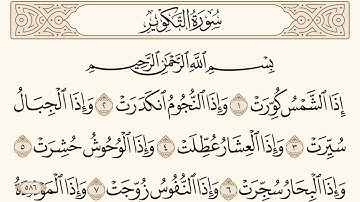 سُورَةُ التَّكْوِيرِ
بِسْمِ اللَّهِ الرَّحْمَٰنِ الرَّحِيمِ
إِذَا الشَّمْسُ كُوِّرَتْ ١ وَإِذَا النُّجُومُ انْكَدَرَتْ ٢ وَإِذَا الْجِبَالُ
سُيِّرَتْ ٣ وَإِذَا الْعِشَارُ عُطِّلَتْ ٤ وَإِذَا الْوُحُوشُ حُشِرَتْ ٥
وَإِذَا الْبِحَارُ سُجِّرَتْ ٦ وَإِذَا النُّفُوسُ زُوِّجَتْ ٧ وَإِذَا
٥٨٦